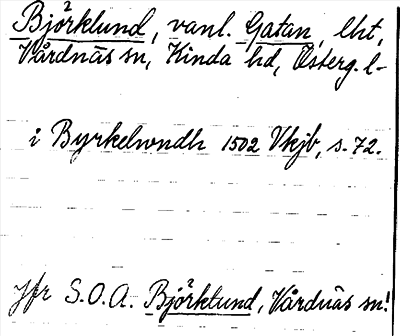 Björklund, vanl. Gatan, lht,
Vårdnäs sn, Kinda hd, Österg. l-
i Byrkelwndh 1502 Vkjb, s. 72.
Jfr S.O.A. Björklund, Vårdnäs sn!